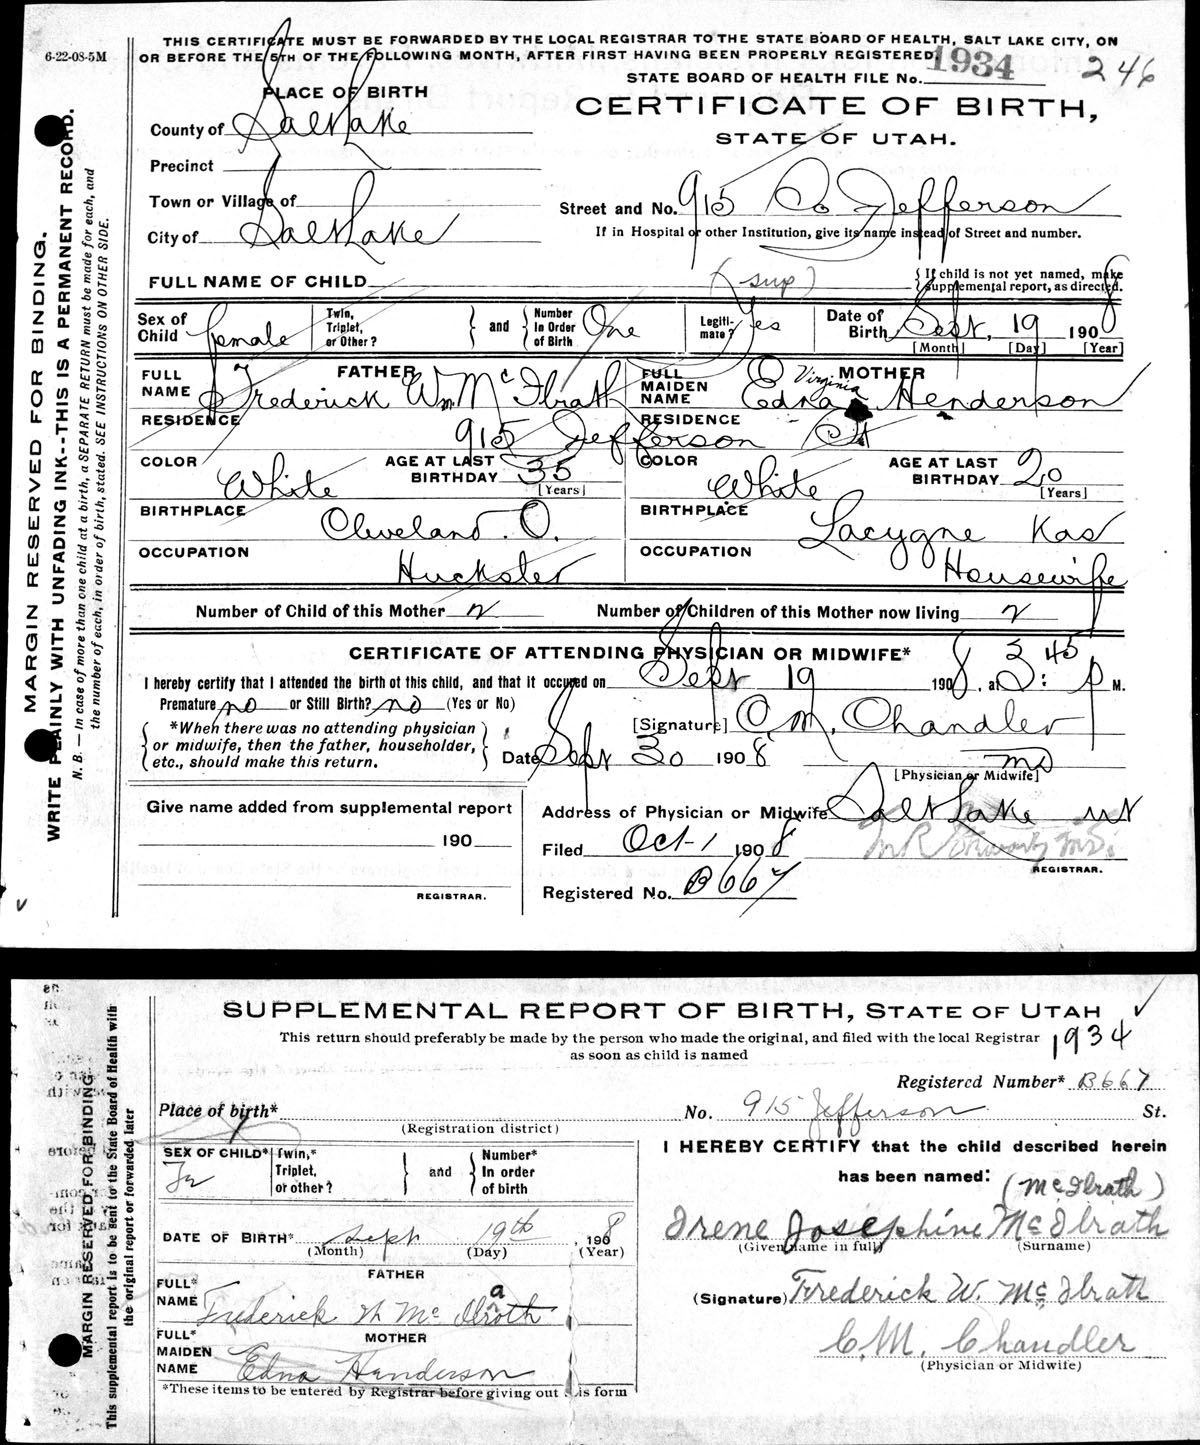 6-22-08-5M
THIS CERTIFICATE MUST BE FORWARDED BY THE LOCAL REGISTRAR TO THE STATE BOARD OF HEALTH, SALT LAKE CITY, ON
OR BEFORE THE 5TH OF THE FOLLOWING MONTH, AFTER FIRST HAVING BEEN PROPERLY REGISTERED.
STATE BOARD OF HEALTH FILE No. 1934 246
PLACE OF BIRTH
CERTIFICATE OF BIRTH,
STATE OF UTAH.
County of Salt Lake
Precinct
Town or Village of
Street and No. 915 So Jefferson
City of Salt Lake
If in Hospital or other Institution, give its name instead of Street and number.
FULL NAME OF CHILD (sup) { If child is not yet named, make supplemental report, as directed.
Sex of Child female Twin, Triplet, or Other? } and { Number In Order of Birth One Legiti-mate? Yes Date of Birth Sept, 19 1908
[Month] [Day] [Year]
FATHER
MOTHER
FULL NAME Frederick Wm McIlrath
FULL MAIDEN NAME Edna Virginia Henderson
RESIDENCE 915 Jefferson St
RESIDENCE
COLOR White AGE AT LAST BIRTHDAY 35 [Years]
COLOR White AGE AT LAST BIRTHDAY 20 [Years]
BIRTHPLACE Cleveland. O.
BIRTHPLACE Lacygne Kas
OCCUPATION Huckster
OCCUPATION Housewife
Number of Child of this Mother 2 Number of Children of this Mother now living 2
CERTIFICATE OF ATTENDING PHYSICIAN OR MIDWIFE*
I hereby certify that I attended the birth of this child, and that it occured on Sept 19 1908, at 3:45 P M.
Premature? no or Still Birth? no (Yes or No)
*When there was no attending physician
or midwife, then the father, householder,
etc., should make this return.
[Signature] C. M. Chandler
Date Sept 30 1908 MD
[Physician or Midwife]
Give name added from supplemental report
190
REGISTRAR.
Address of Physician or Midwife Salt Lake Ut
Filed Oct-1 1908
REGISTRAR.
Registered No. B667
MARGIN RESERVED FOR BINDING.
WRITE PLAINLY WITH UNFADING INK--THIS IS A PERMANENT RECORD.
N. B. — In case of more than one child at a birth, a SEPARATE RETURN must be made for each, and
the number of each, in order of birth, stated. SEE INSTRUCTIONS ON OTHER SIDE.
SUPPLEMENTAL REPORT OF BIRTH, STATE OF UTAH
This return should preferably be made by the person who made the original, and filed with the local Registrar
as soon as child is named
1934
Registered Number* B667
Place of birth* No. 915 Jefferson St.
(Registration district)
SEX OF CHILD* Fe Twin,* Triplet, or other? } and { Number* In order of birth
DATE OF BIRTH* Sept 19th, 1908
(Month) (Day) (Year)
FATHER
FULL* NAME Frederick W McIlroth a
MOTHER
FULL* MAIDEN NAME Edna Henderson
*These items to be entered by Registrar before giving out this form
I HEREBY CERTIFY that the child described herein
has been named:
(McIlrath)
Irene Josephine McIlrath
(Given name in full) (Surname)
(Signature) Frederick W. McIlrath
C. M. Chandler
(Physician or Midwife)
MARGIN RESERVED FOR BINDING
This supplemental report is to be sent to the State Board of Health with
the original report or forwarded later